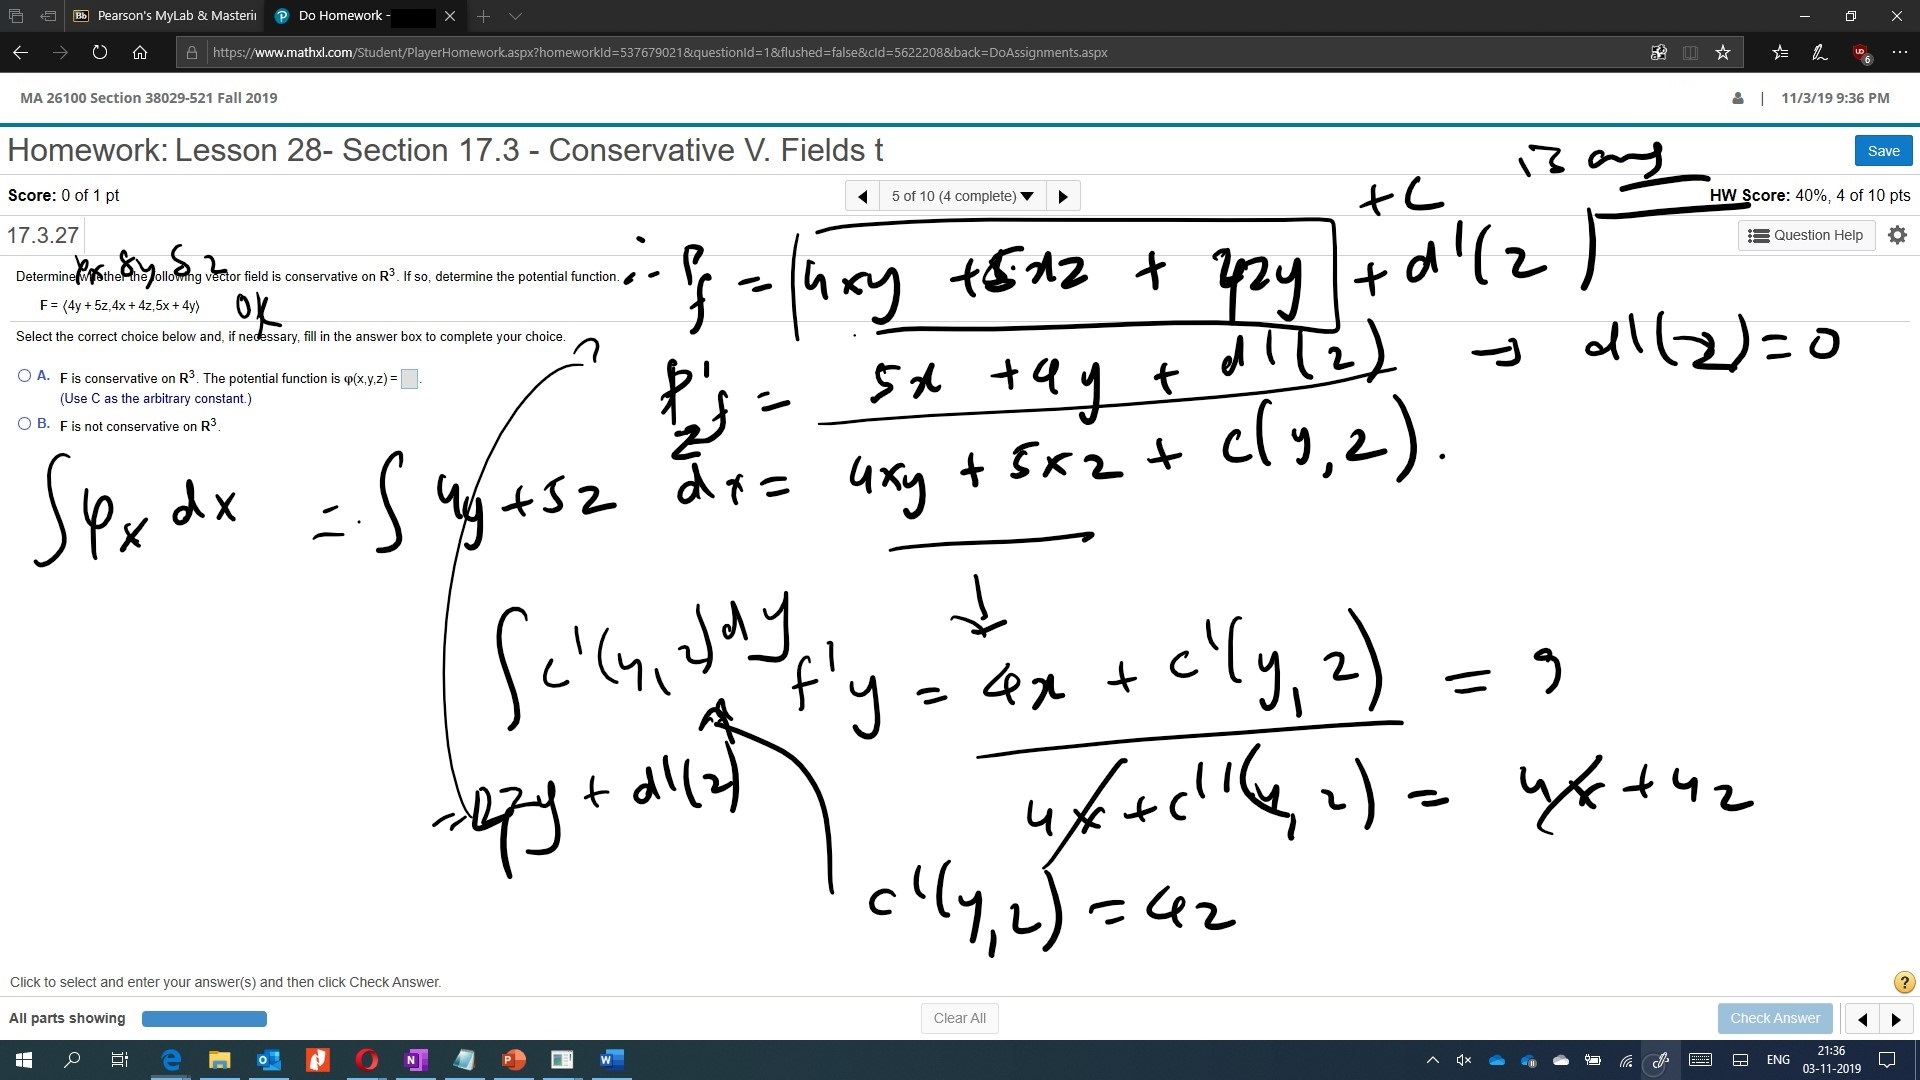 Pearson's MyLab & Masterin
Do Homework -
https://www.mathxl.com/Student/PlayerHomework.aspx?homeworkId=537679021&questionId=1&flushed=false&cId=5622208&back=DoAssignments.aspx
MA 26100 Section 38029-521 Fall 2019
11/3/19 9:36 PM
Homework: Lesson 28- Section 17.3 - Conservative V. Fields t
Save
Score: 0 of 1 pt
5 of 10 (4 complete)
HW Score: 40%, 4 of 10 pts
+ C
17.3.27
Question Help
Determine whether the following vector field is conservative on R³. If so, determine the potential function.
F = ⟨4y + 5z,4x + 4z,5x + 4y⟩
ok
Select the correct choice below and, if necessary, fill in the answer box to complete your choice.
A. F is conservative on R³. The potential function is φ(x,y,z) = .
(Use C as the arbitrary constant.)
B. F is not conservative on R³.
+ d'(z)
5x + 4y + d'(z) → d'(z) = 0
∫ φx dx = ∫ 4y + 5z dx = 4xy + 5xz + c(y,z).
∫ c'(y,z) dy
f'y = 4x + c'(y,z) =
4x + c'(y,z) = 4x + 4z
+ d'(z)
c'(y,z) = 4z
Click to select and enter your answer(s) and then click Check Answer.
?
All parts showing
Clear All
Check Answer
ENG
21:36
03-11-2019